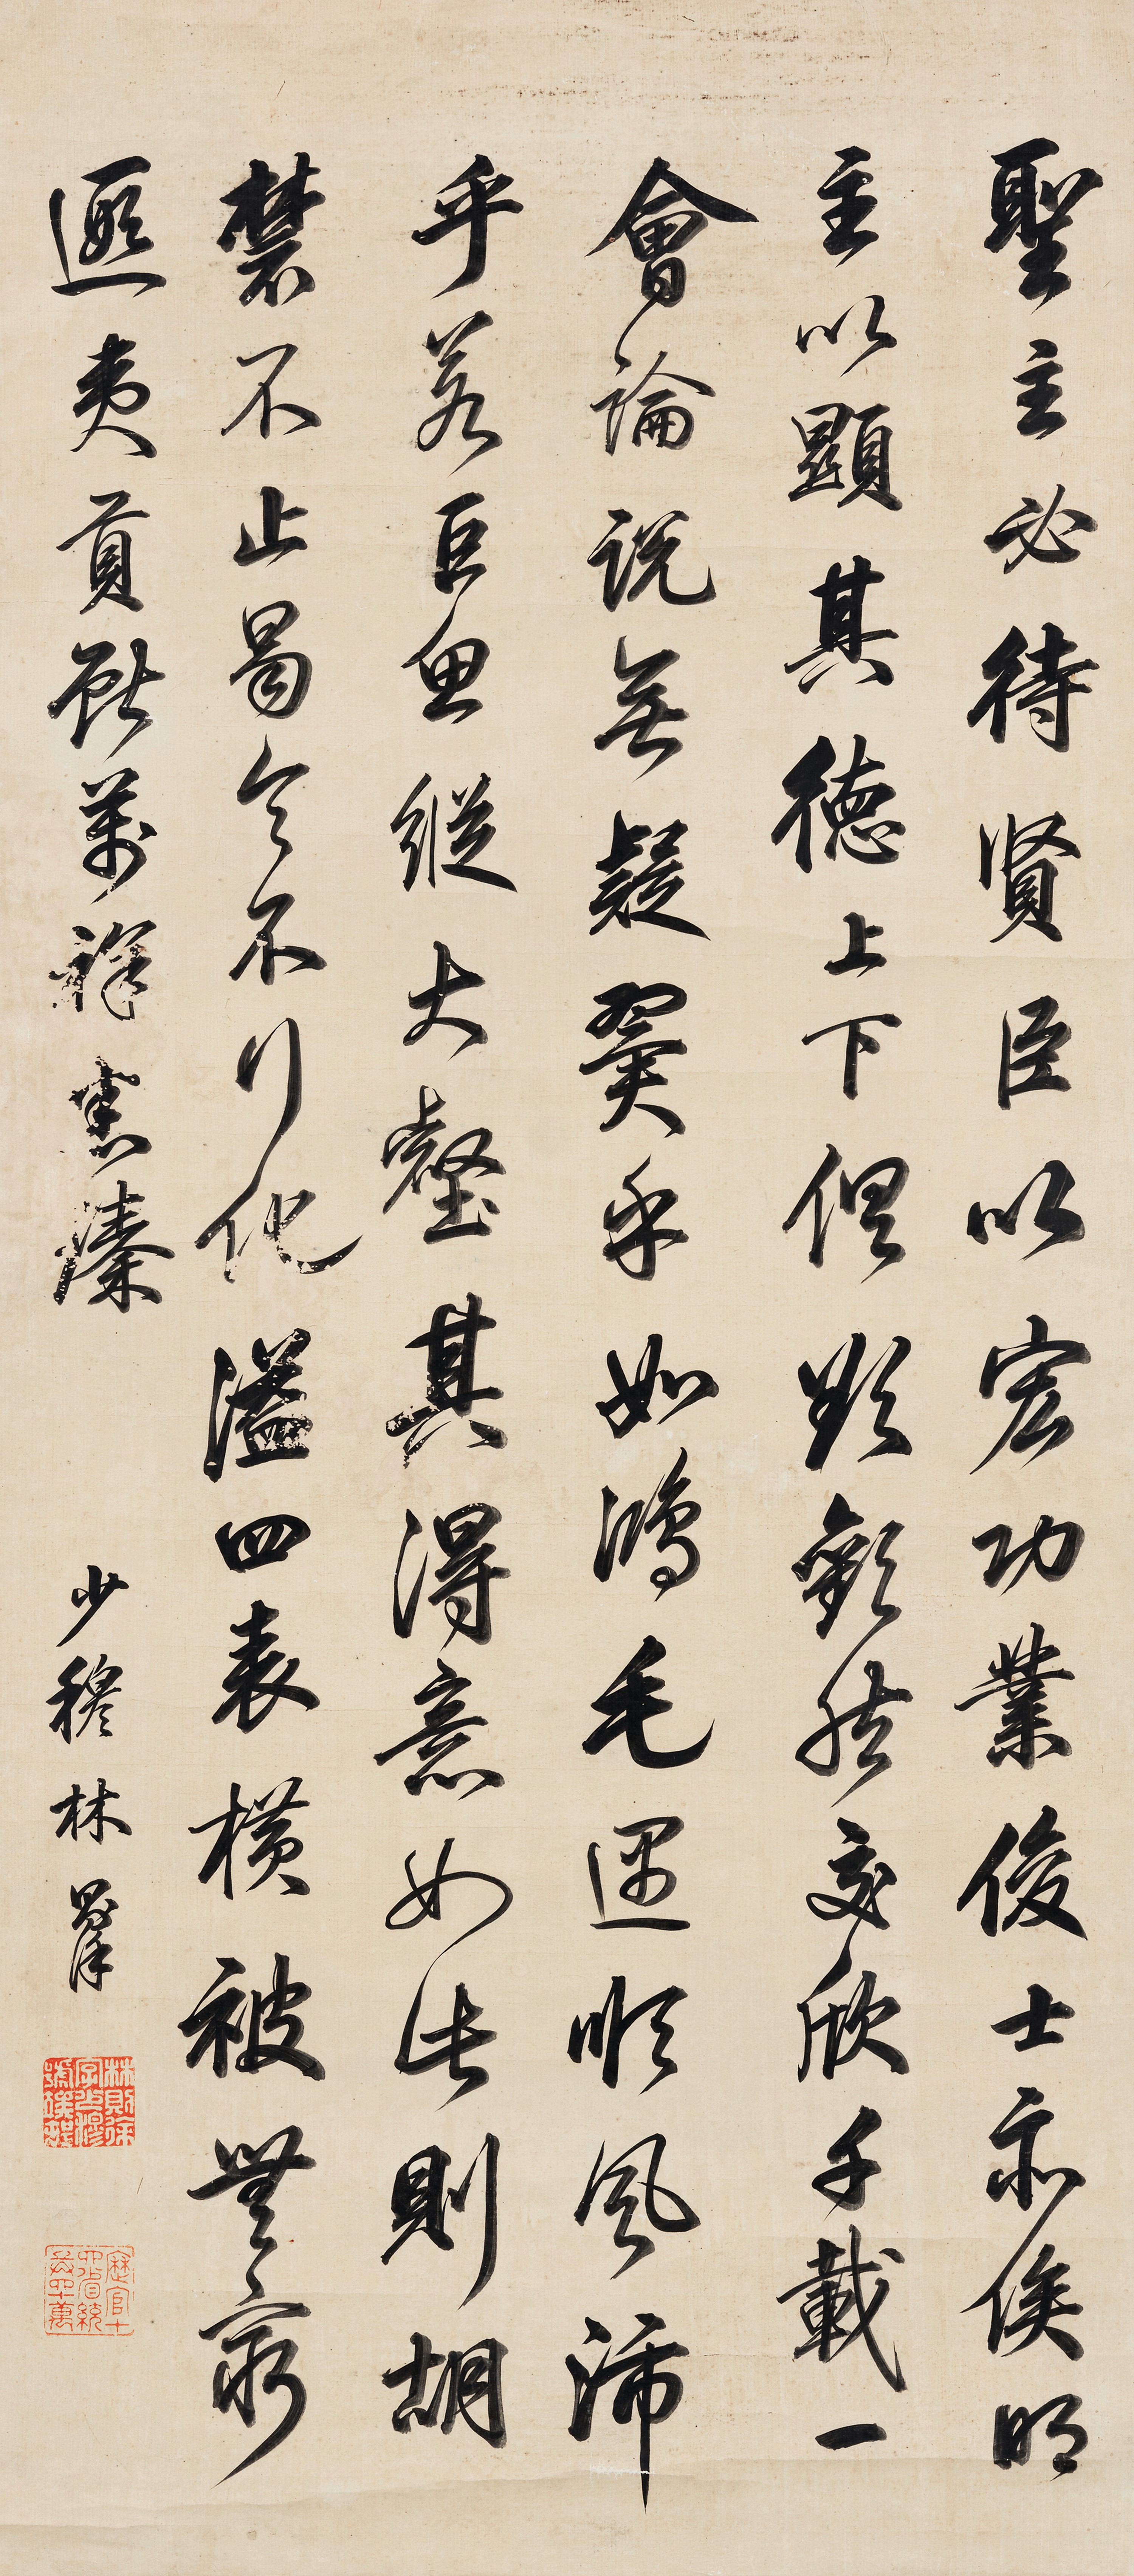 聖主必待賢臣以宏功業俊士亦俟明
主以顯其德上下俱欲歡然交欣千載一
會論說無疑翼乎如鴻毛遇順風沛
乎若巨魚縱大壑其得意如此則胡
禁不止曷令不行化溢四表橫被無窮
遐夷貢獻萬祥畢臻
少穆林則徐
林則徐字少穆號竢邨
歷官十四省統兵四十萬